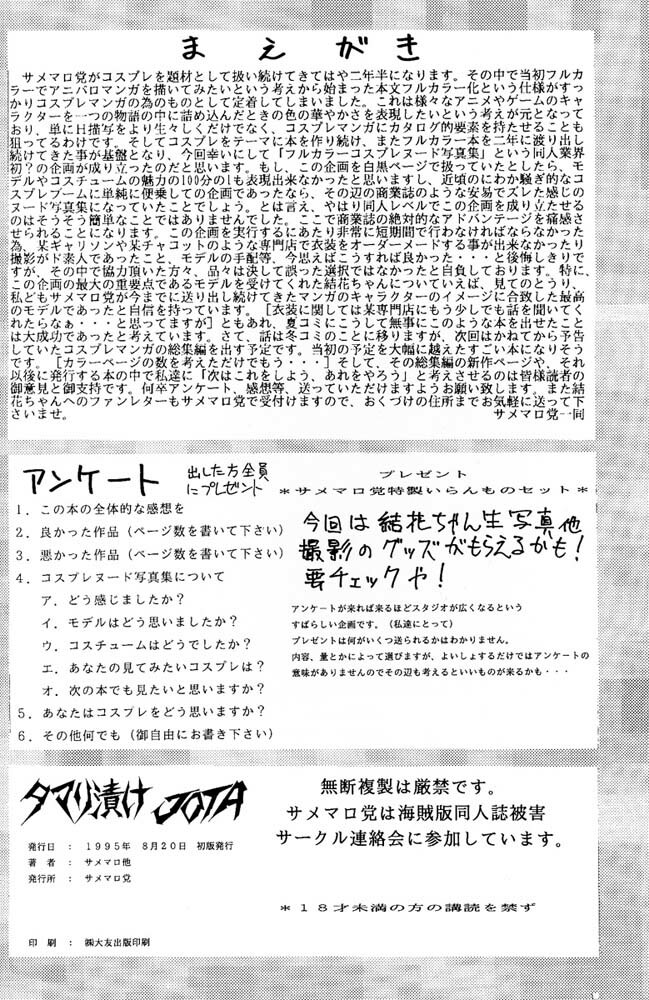 まえがき
サメマロ党がコスプレを題材として扱い続けてきてはや二年半になります。その中で当初フルカ
ラーでアニパロマンガを描いてみたいという考えから始まった本文フルカラー化という仕様がすっ
かりコスプレマンガの為のものとして定着してしまいました。これは様々なアニメやゲームのキャ
ラクターを一つの物語の中に詰め込んだときの色の華やかさを表現したいという考えが元となって
おり、単にH描写をより生々しくだけでなく、コスプレマンガにカタログ的要素を持たせることも
狙ってるわけです。そしてコスプレをテーマに本を作り続け、またフルカラー本を二年に渡り出し
続けてきた事が基盤となり、今回幸いにして「フルカラーコスプレヌード写真集」という同人業界
初？の企画が成り立ったのだと思います。もし、この企画を白黒ページで扱っていたとしたら、モ
デルやコスチュームの魅力の100分の1も表現出来なかったと思いますし、近頃のにわか騒ぎ的なコ
スプレブームに単純に便乗しての企画であったなら、その辺の商業誌のような安易でズレた感じの
ヌード写真集になっていたことでしょう。とは言え、やはり同人レベルでこの企画を成り立たせる
のはそうそう簡単なことではありませんでした。ここで商業誌の絶対的なアドバンテージを痛感さ
せられることになります。この企画を実行するにあたり非常に短期間で行わなければならなかった
為、某ギャリソンや某チャコットのような専門店で衣装をオーダーメードする事が出来なかったり
撮影がド素人であったこと、モデルの手配等、今思えばこうすれば良かった・・・と後悔しきりで
すが、その中で協力頂いた方々、品々は決して誤った選択ではなかったと自負しております。特に、
この企画の最大の重要点であるモデルを受けてくれた結花ちゃんについていえば、見てのとうり、
私どもサメマロ党が今までに送り出し続けてきたマンガのキャラクターのイメージに合致した最高
のモデルであったと自信を持っています。［衣装に関しては某専門店にもう少しでも話を聞いてく
れたらなぁ・・・と思ってますが］ともあれ、夏コミにこうして無事にこのような本を出せたこと
は大成功であったと考えています。さて、話は冬コミのことに移りますが、次回はかねてから予告
していたコスプレマンガの総集編を出す予定です。当初の予定を大幅に越えたすごい本になりそう
です。［カラーページの数を考えただけでもう・・・］そして、その総集編の新作ページや、それ
以後に発行する本の中で私達に「次はこれをしよう、あれをやろう」と考えさせるのは皆様読者の
御意見と御支持です。何卒アンケート、感想等、送っていただけますようお願い致します。また結
花ちゃんへのファンレターもサメマロ党で受付けますので、おくづけの住所までお気軽に送って下
さいませ。 サメマロ党一同
アンケート 出した方全員にプレゼント
1．この本の全体的な感想を
2．良かった作品（ページ数を書いて下さい）
3．悪かった作品（ページ数を書いて下さい）
4．コスプレヌード写真集について
ア．どう感じましたか？
イ．モデルはどう思いましたか？
ウ．コスチュームはどうでしたか？
エ．あなたの見てみたいコスプレは？
オ．次の本でも見たいと思いますか？
5．あなたはコスプレをどう思いますか？
6．その他何でも（御自由にお書き下さい）
プレゼント
＊サメマロ党特製いらんものセット＊
今回は結花ちゃん生写真他
撮影のグッズがもらえるかも！
要チェックや！
アンケートが来れば来るほどスタジオが広くなるという
すばらしい企画です。（私達にとって）
プレゼントは何がいくつ送られるかはわかりません。
内容、量とかによって選びますが、よいしょするだけではアンケートの
意味がありませんのでその辺も考えるといいものが来るかも・・・
タマリ漬け JOTA
発行日 ： 1995年 8月20日 初版発行
著者 ： サメマロ他
発行所 ： サメマロ党
印刷 ： ㈱大友出版印刷
無断複製は厳禁です。
サメマロ党は海賊版同人誌被害
サークル連絡会に参加しています。
＊18才未満の方の講読を禁ず